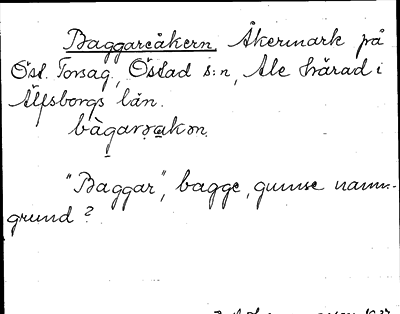 Baggareåkern. Åkermark på
Öst. Torsag, Östad s:n, Ale härad i
Älfsborgs län.
"Baggar", bagge, gumse namn-
grund?